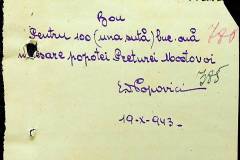 Bon
Pentru 100 (una sută) buc. ouă
necesare popotei Preturei Mostovoi
785
785
EPopovici
19-X-943.